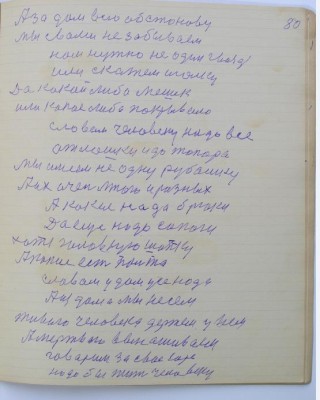 80
А за дом всю обстонову
мы свами не забываем
нам нужно не один гвозд
или скажем иголку
Да какой либо мешок
или какое либо покрывало
словам человеку надо все
от ложки и до топора
Мы имеем не одну рубашку
А их очен много и разных
А какже нада брюки
Да еще надо сапоги
хотя головную шапку
А после ест
словам и дом усе нода
А из дома мы несем
живого человека держем у
А мертвого выносим
говарим за свае горе
надо бы жит человеку